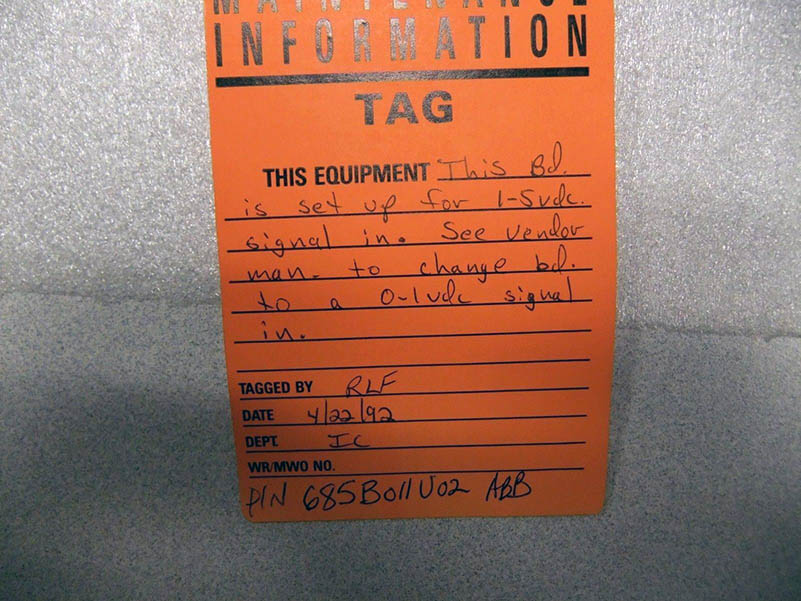 MAINTENANCE
INFORMATION
TAG
THIS EQUIPMENT This Bd.
is set up for 1-5vdc.
signal in. See vendor
man. to change bd.
to a 0-1vdc signal
in.
TAGGED BY RLF
DATE 4/22/92
DEPT. IC
WR/MWO NO.
P/N 685B011U02 ABB